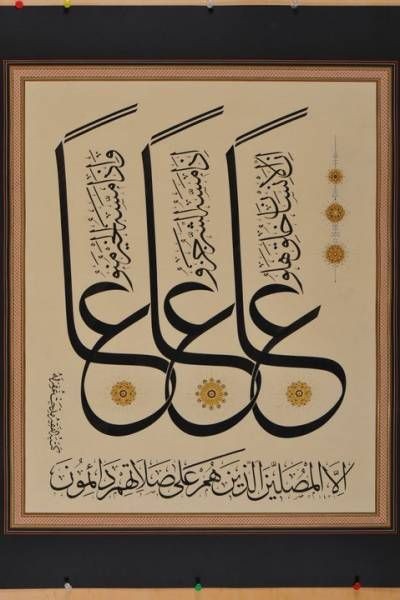 إن الإنسان خلق هلوعا
إذا مسه الشر جزوعا
وإذا مسه الخير منوعا
إلا المصلين الذين هم على صلاتهم دائمون